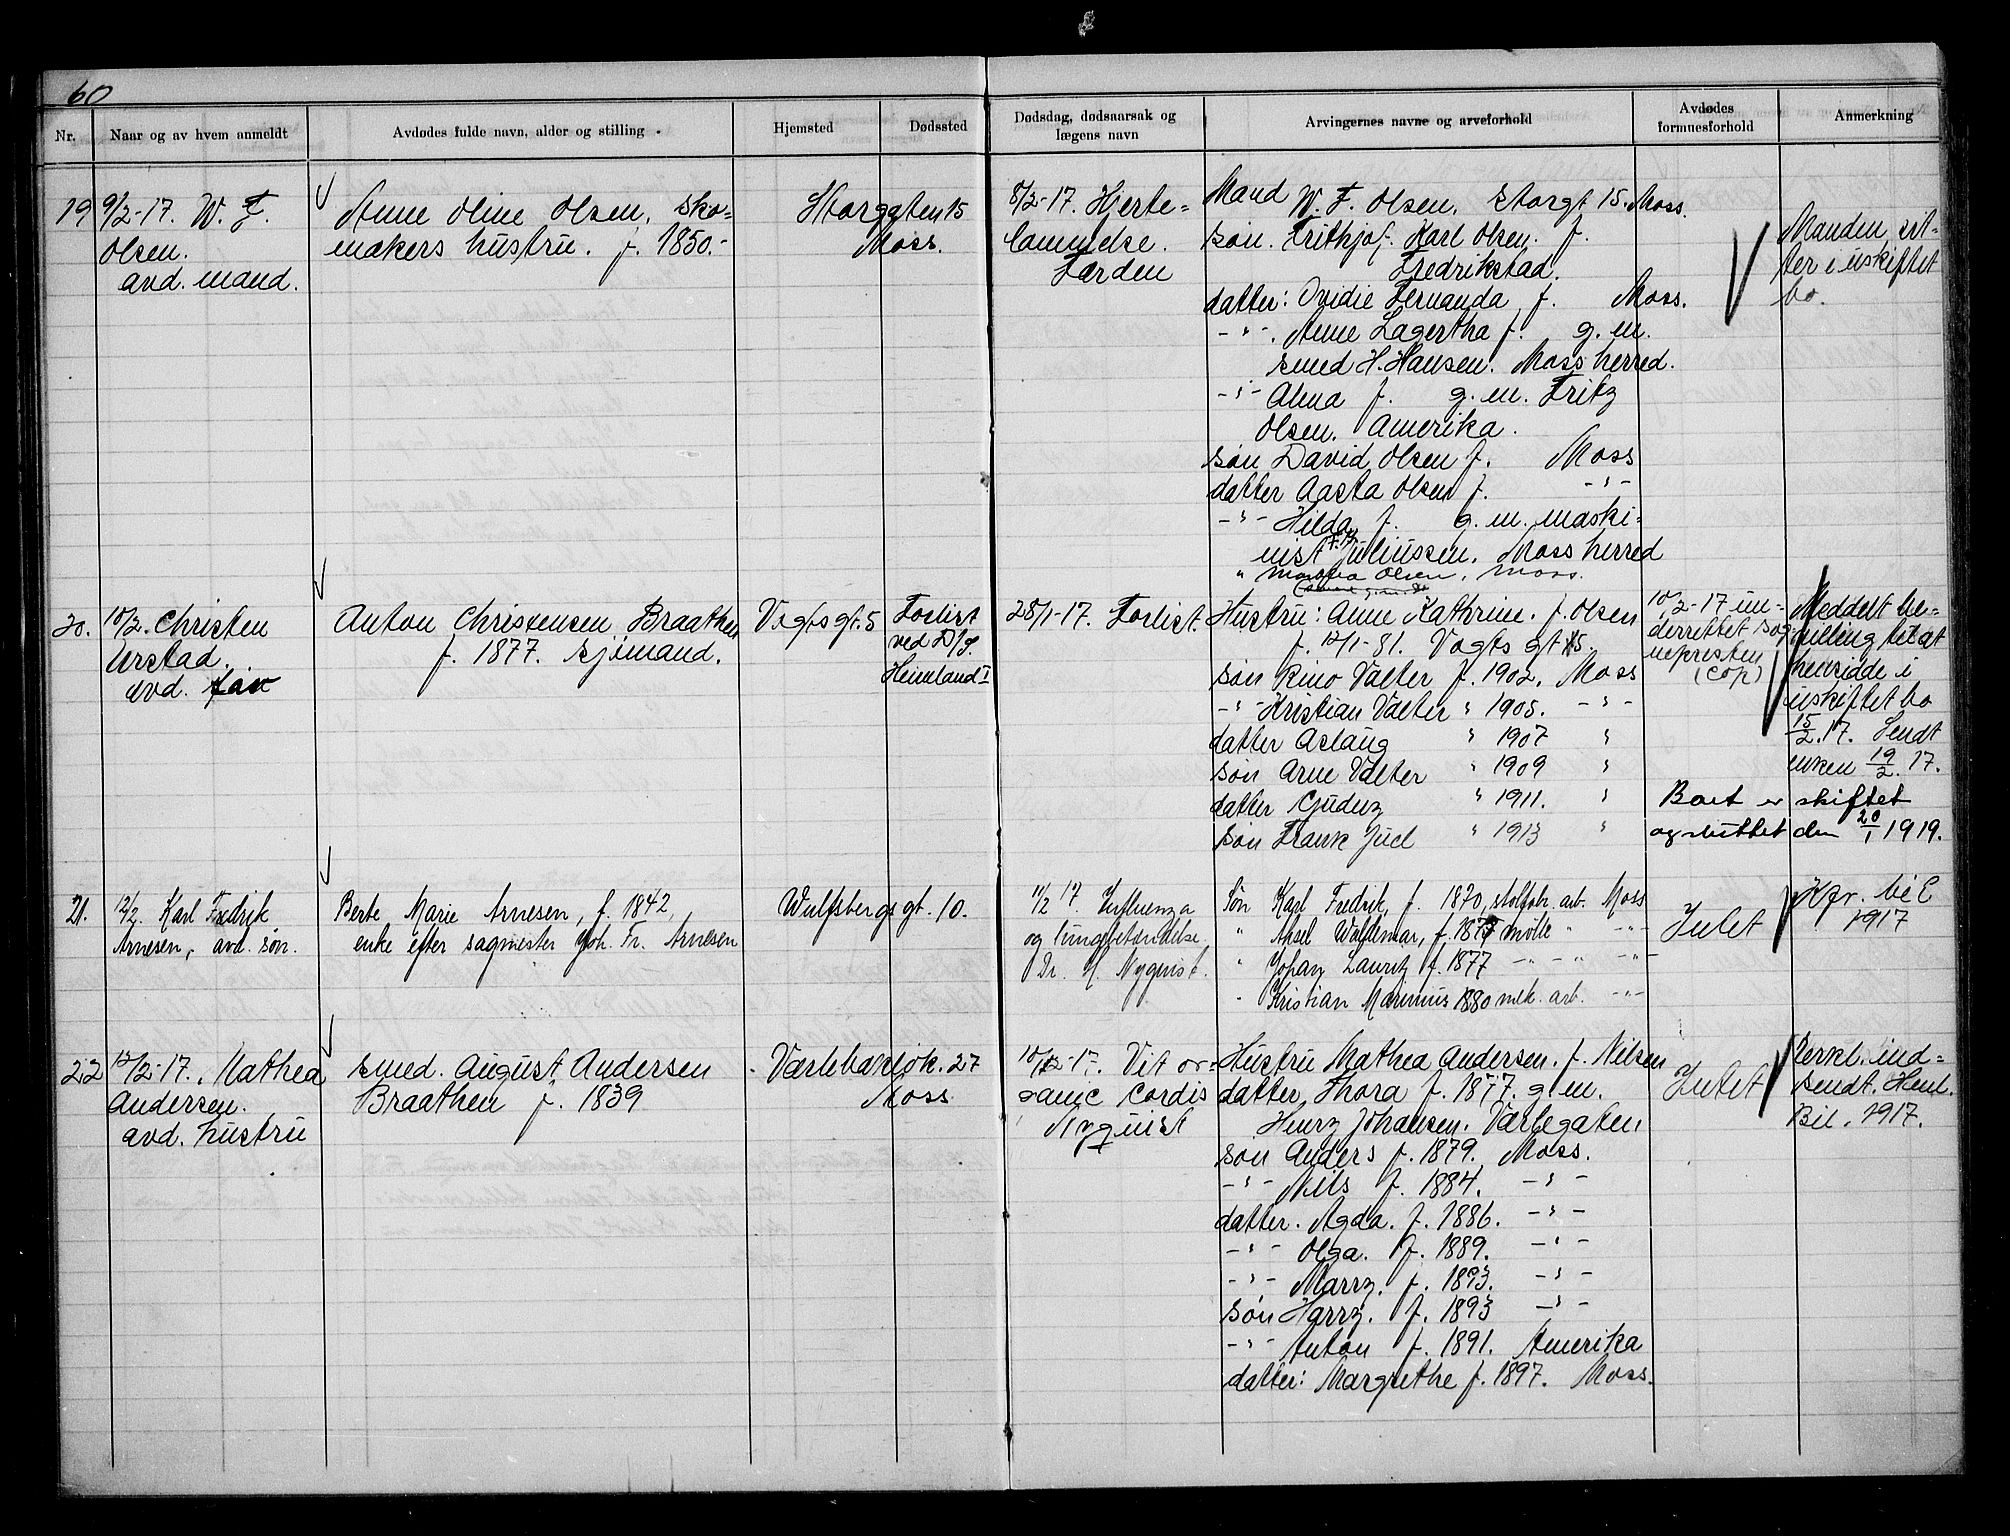 60
Nr.
Naar og av hvem anmeldt
Avdødes fulde navn, alder og stilling
Hjemsted
Dødssted
Dødsdag, dødsaarsak og
lægens navn
Arvingernes navne og arveforhold
Avdødes
formuesforhold
Anmerkning
19
9/2-17. W. F.
Olsen.
avd. mand.
Anne Oline Olsen, sko=
makers hustru. f. 1850.-
Storgaten 15
Moss.
8/2-17. Hjerte=
lammelse.
Færden
Mand W. F. Olsen. Storgt 15. Moss.
søn. Frithjof Karl Olsen. f.
Fredrikstad.
datter: Ovidie Fernanda f. Moss.
-"- Anne Lagertha f. g. m.
smed H. Hansen. Moss herred.
-"- Alma f. g. m. Fritz
Olsen. Amerika.
søn David Olsen f. Moss
datter Aasta Olsen f. -"-
-"- Hilda f. g. m. maski=
nist Juliussen. Moss herred
" Martha Olsen, Moss.
Manden sit=
ter i uskiftet
bo.
20.
10/2. Christen
Urstad.
avd. far
Anton Christensen Braathen
f. 1877. sjømand.
Vogts gt. 5
Forlist
ved D/S.
Heimland I
28/1-17. Forlist.
Hustru: Anne Kathrine. f. Olsen
f. 12/1-81. Vogts gt 5.
søn Rino Valter f. 1902. Moss
-"- Kristian Valter " 1905. -"-
datter Aslaug " 1907 "
søn Arne Valter " 1909 "
datter Gudny " 1911. "
søn Frank Juel " 1913 "
10/2-17 un=
derrettet sog
nepresten
(cop)
Meddelt be=
villing til at
hensidde i
uskiftet bo
15/2.17. Sendt
enken 19/2.17.
Boet er skiftet
og sluttet den 20/1 1919.
21.
12/2. Karl Fredrik
Arnesen, avd. søn.
Berte Marie Arnesen, f. 1842,
enke efter sagmester Joh. Fr. Arnesen
Wulfsbergs gt. 10.
11/2 17. Influenza
og lungebetændelse.
Dr. H. Nyquist.
Søn Karl Fredrik, f. 1870, stolfabr. arb. Moss
" Aksel Waldemar, f. 187 mølle " -"-
" Johan Lauritz f. 1877 -"-"- -"-
" Kristian Marinius 1880 mek. arb. -"-
Intet
Kfr. bil
1917
22
12/2-17. Mathea
Andersen.
avd. hustru
smed. August Andersen
Braathen f. 1839
Værlebakløk. 27
Moss
10/2-17. Vit or=
ganic cordis
Nyquist
Hustru Mathea Andersen. f. Nilsen
datter Thora f. 1877. g. m.
Henry Johansen. Værlegaten
søn Anders f. 1879. Moss.
-"- Nils f. 1884. -"-
datter. Agda. f. 1886. -"-
-"- Olga. f. 1889. -"-
-"- Marry. f. 1893. -"-
søn Harry. f. 1893 -"-
-"- Anton f. 1891. Amerika
datter: Margrethe f. 1897. Moss.
Intet
Erkl. ind=
sendt. Henl.
Bil. 1917.